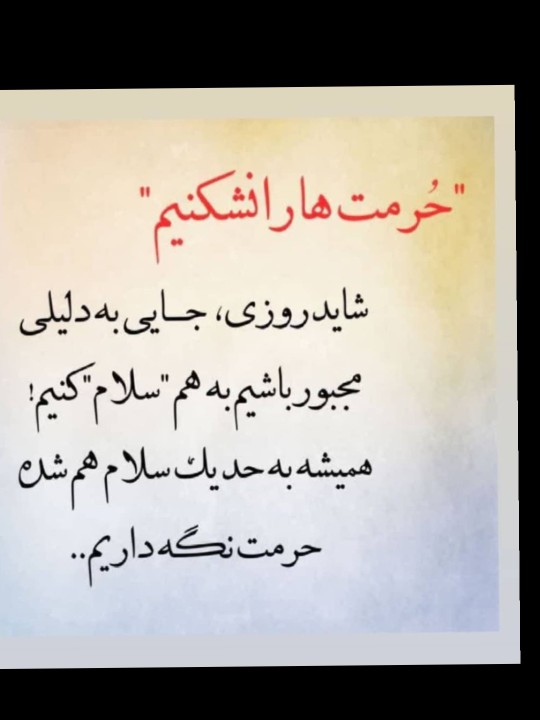 "حُرمت ها را نشکنیم"
شاید روزی، جایی به دلیلی
مجبور باشیم به هم "سلام" کنیم!
همیشه به حد یک سلام هم شده
حرمت نگه داریم..